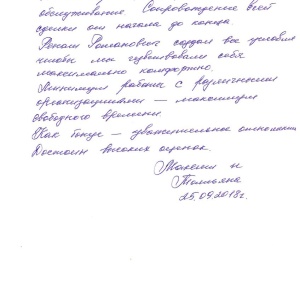 обслуживание Сопровождение всей
сделки от начала до конца.
Роман Романович создал все условия
чтобы мы чувствовали себя
максимально комфортно.
Минимум работы с различными
организациями — максимум
свободного времени.
Как бонус — уважительное отношение.
Достоин высоких оценок.
Максим и
Татьяна
25.09.2018г.